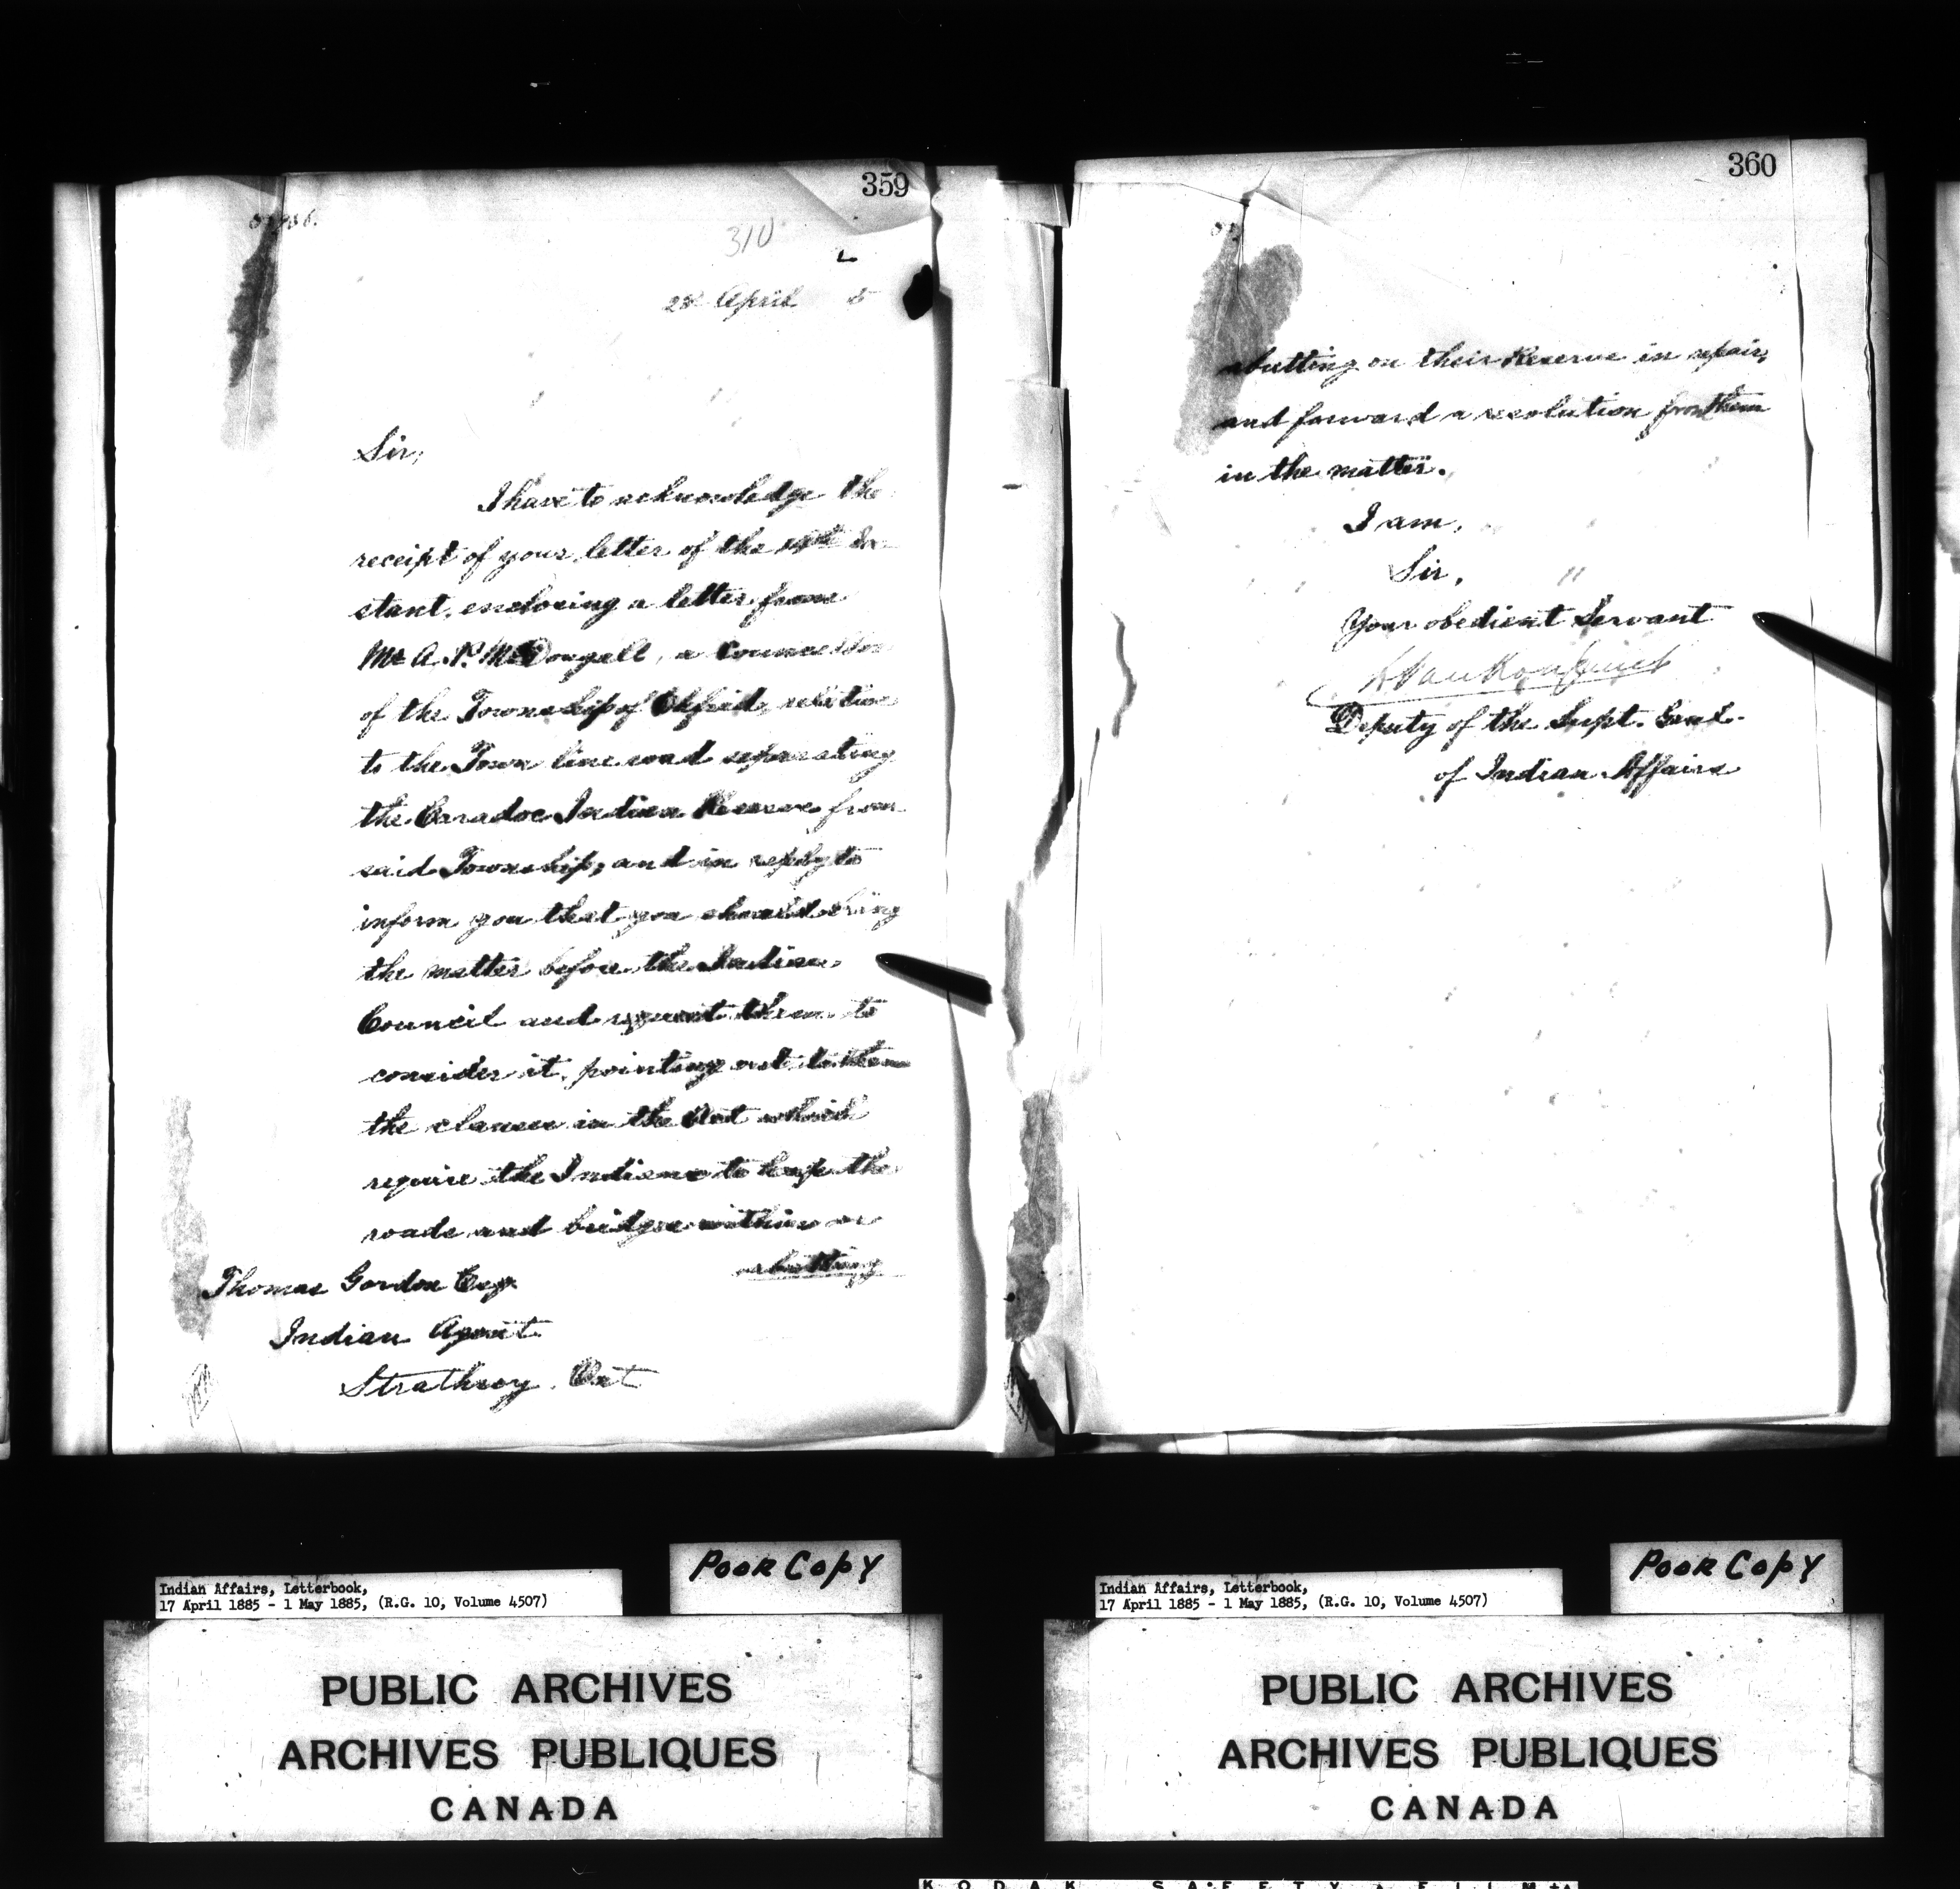 359
310
L
28 April 5
Sir,
I have to acknowledge the
receipt of your letter of the 14th In-
stant, enclosing a letter from
Mr A. P. McDougall, a Councillor
of the Township of Ekfrid, relative
to the Town line road separating
the Caradoc Indian Reserve from
said Township, and in reply to
inform you that you should bring
the matter before the Indian
Council and request them to
consider it, pointing out to them
the clauses in the Act which
require the Indians to keep the
roads and bridges within or
abutting
Thomas Gordon Esq
Indian Agent
Strathroy. Ont
360
abutting on their Reserve in repair,
and forward a resolution from them
in the matter.
I am,
Sir,
Your obedient Servant
L Vankoughnet
Deputy of the Supt. Genl.
of Indian Affairs
Indian Affairs, Letterbook,
17 April 1885 - 1 May 1885, (R.G. 10, Volume 4507)
POOR COPY
PUBLIC ARCHIVES
ARCHIVES PUBLIQUES
CANADA
Indian Affairs, Letterbook,
17 April 1885 - 1 May 1885, (R.G. 10, Volume 4507)
POOR COPY
PUBLIC ARCHIVES
ARCHIVES PUBLIQUES
CANADA
KODAK SAFETY FILM